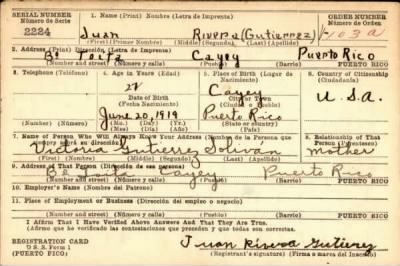 SERIAL NUMBER 1. Name (Print) Nombre (Letra de Imprenta) ORDER NUMBER
Número de Serie Número de Orden
2224 Juan Rivera (Gutierrez) 1103a
(First) (Primer Nombre) (Middle) (Segundo) (Last) (Apellido)
2. Address (Print) Dirección (Letra de Imprenta)
Bº Toita Cayey Puerto Rico
(Number) (Número y calle) (Town) (Pueblo) (Barrio) PUERTO RICO
3. Telephone (Teléfono) 4. Age in Years (Edad) 5. Place of Birth (Lugar de Nacimiento) 6. Country of Citizenship (Ciudadanía)
21 Cayey
Date of Birth City or Town
(Fecha Nacimiento) (Ciudad o Pueblo) U.S.A.
June 20, 1919 Puerto Rico
(Mo./Mes) (Day/Día) (Yr./Año) (State or country) (País)
7. Name of Person Who Will Always Know Your Address (Nombre de la Persona que 8. Relationship of That Person
Victoria Gutierrez Solivan mother
(First) (Nombre) (Middle) (Segundo) (Last) (Apellido)
9. Address of That Person (Dirección de esa persona)
Bº Toita Cayey Puerto Rico
(Number) (Número y calle) (Town) (Pueblo) (Barrio) PUERTO RICO
10. Employer's Name (Nombre del Patrono)
11. Place of Employment or Business (Dirección del empleo o negocio)
(Number) (Número y calle) (Town) (Pueblo) (Barrio) PUERTO RICO
I Affirm That I Have Verified Above Answers And That They Are True.
(Afirmo que he verificado las contestaciones que preceden y que todas son correctas.
REGISTRATION CARD Juan Rivera Gutierrez
D. S. S. Form 1 (Registrant's signature) (Firma o marca del Inscrito)